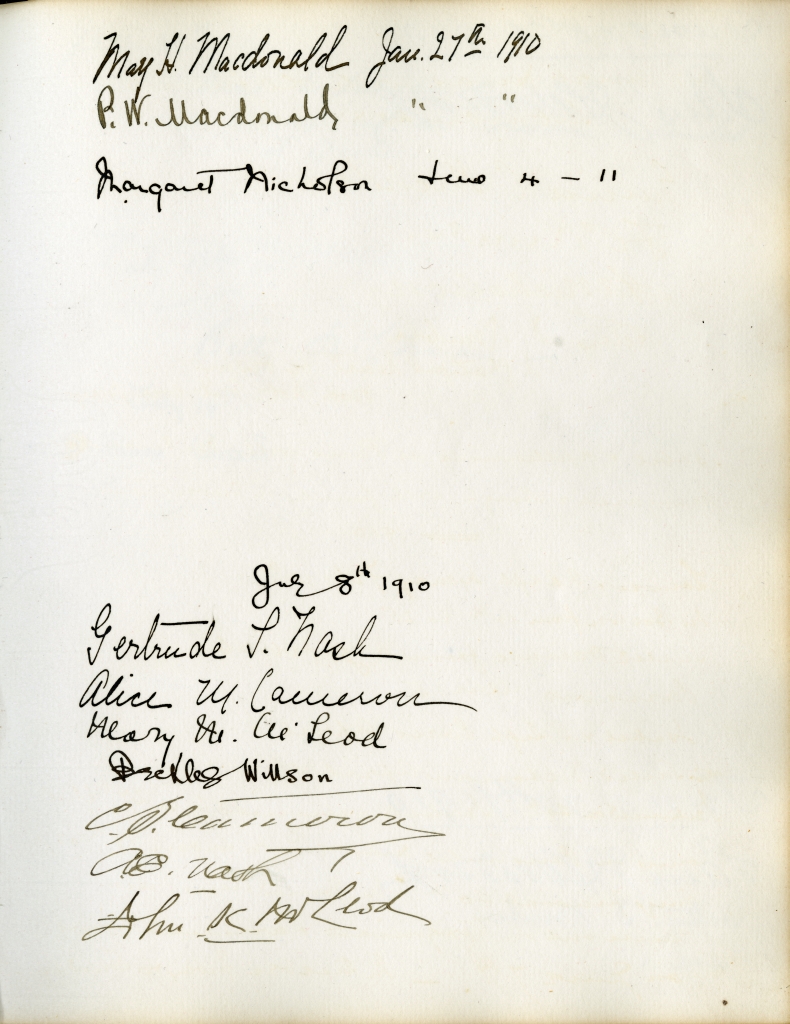 May H. Macdonald Jan. 27th 1910
P. W. Macdonald " "
Margaret Nicholson 4 - 11
July 8th 1910
Gertrude S. Nash
Alice M. Cameron
Mary M. McLeod
Beckles Willson
C. S. Cameron
A. E. Nash
John K. McLeod